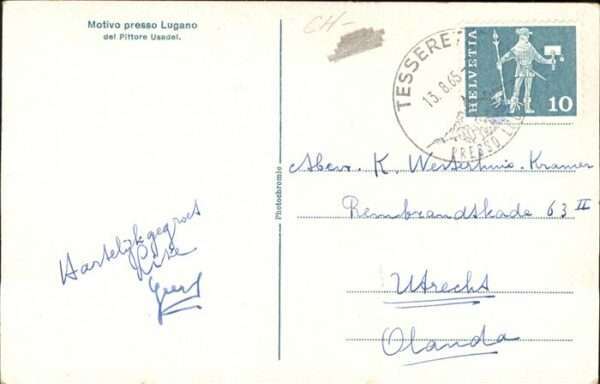 Motivo presso Lugano
del Pittore Usadel.
CH-
TESSERETE
13.8.65
PRESSO LUGANO
HELVETIA
10
Photochromie
K. Westerhuis-Kramer
Rembrandtkade 63 II
Utrecht
Olanda
Hartelijk gegroet
Geert